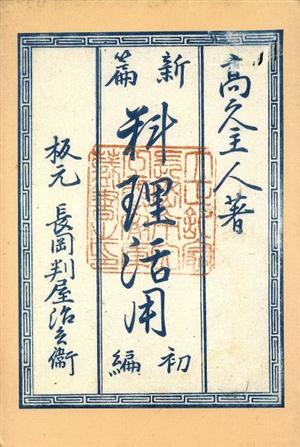 高久主人著
新篇
料理活用
初編
板元 長岡判屋治兵衛